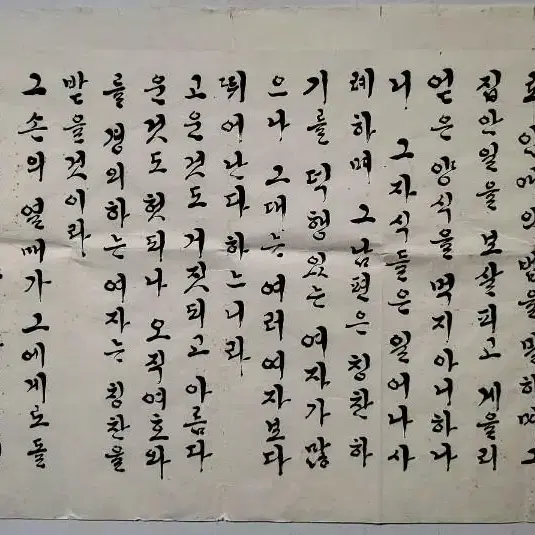 로 인애의 법을 말하며 그
집안일을 보살피고 게을리
얻은 양식을 먹지 아니하나
니 그 자식들은 일어나 사
례하며 그 남편은 칭찬하
기를 덕행 있는 여자가 많
으나 그대는 여러 여자보다
뛰어난다 하느니라
고운 것도 거짓되고 아름다
운 것도 헛되나 오직 여호와
를 경외하는 여자는 칭찬을
받을 것이라
그 손의 열매가 그에게로 돌